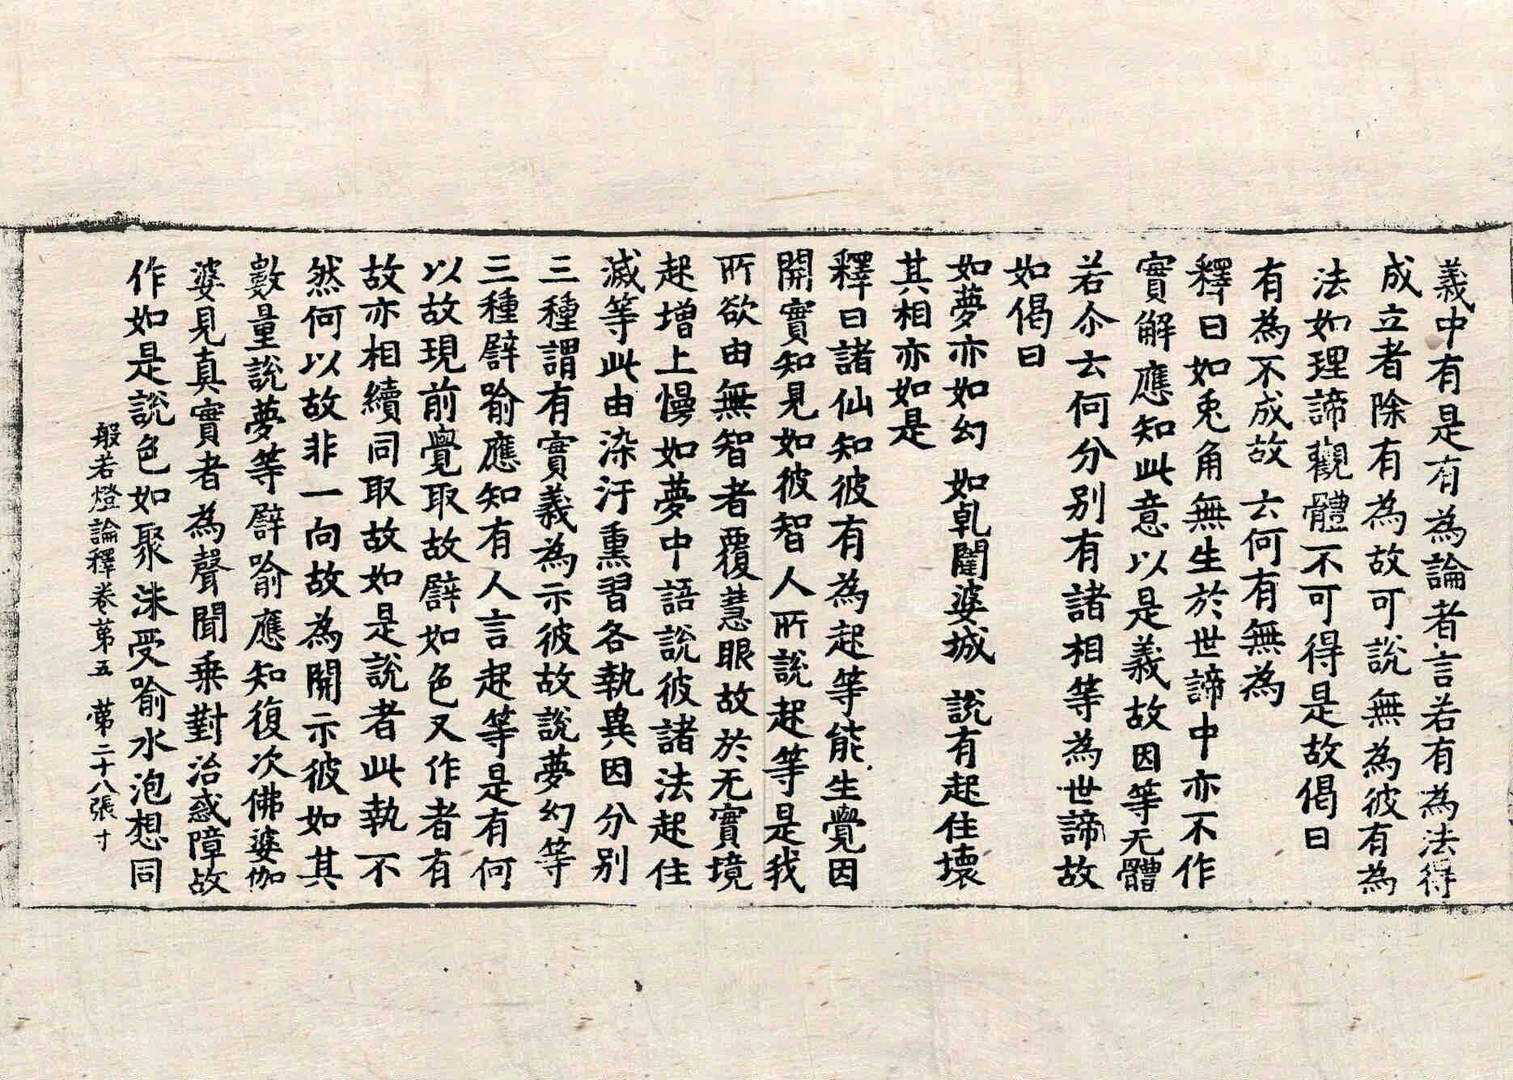 義中有是有為論者言若有為法得
成立者除有為故可說無為彼有為
法如理諦觀體不可得是故偈曰
有為不成故　去何有無為
釋曰如兎角無生於世諦中亦不作
實解應知此意以是義故因等无體
若尒去何分別有諸相等為世諦故
如偈曰
如夢亦如幻　如乹闥婆城　說有起住壞
其相亦如是
釋曰諸仙知彼有為起等能生覺因
開實知見如彼智人所說起等是我
所欲由無智者覆慧眼故於无實境
起增上慢如夢中語說彼諸法起住
滅等此由染汙熏習各執異因分別
三種謂有實義為示彼故說夢幻等
三種譬喻應知有人言起等是有何
以故現前覺取故譬如色又作者有
故亦相續同取故如是說者此執不
然何以故非一向故為開示彼如其
數量說夢等譬喻應知復次佛婆伽
婆見真實者為聲聞乗對治惑障故
作如是說色如聚沫受喻水泡想同
般若燈論釋卷苐五　苐二十八張　寸